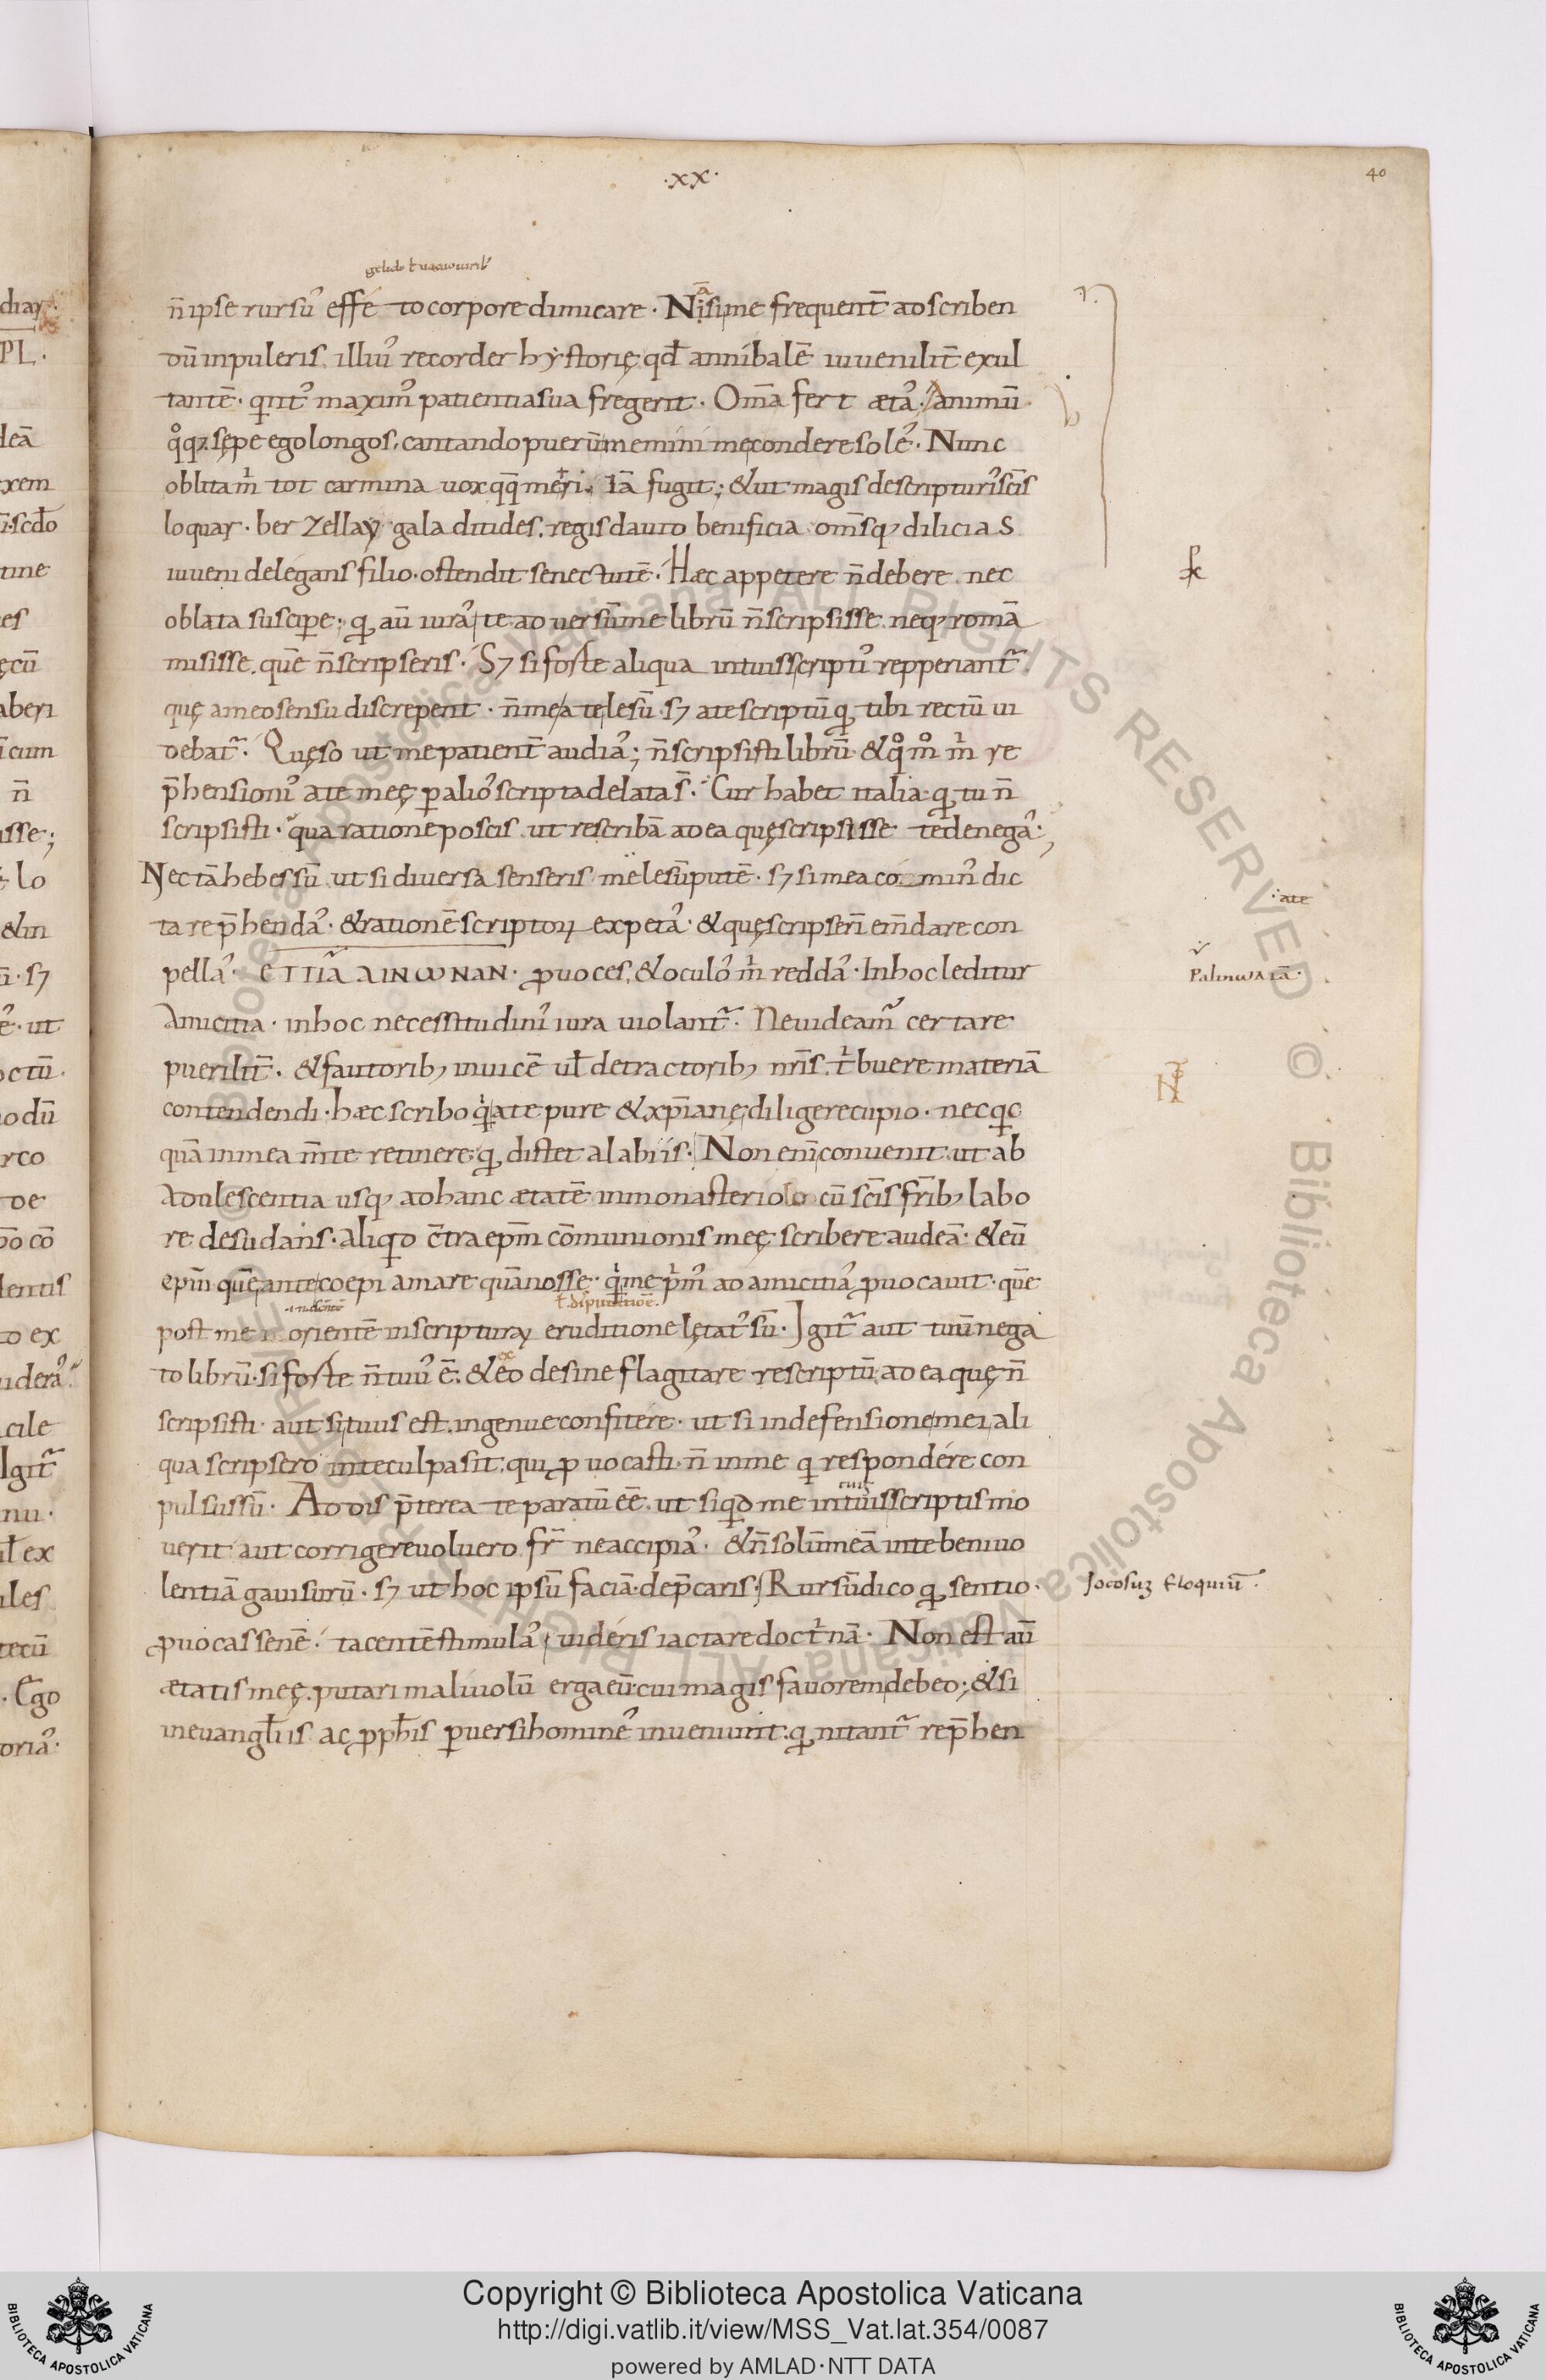 ·xx·
40
gelido ł uacuo uirib᷒
n̄ ipse rursū effé to corpore dimicare · Nisi me frequent̄ ad scriben
dū inpuleris. illiu᷒ recorder hẏstorię. qđ annibalē iuuenilit̄ exul
tantē · qint᷒ maxim᷒ patientia sua fregerit · Om̄a fert ætā · animū ·
q̊q; sępe ego longos. cantando puerū memini me condere solē · Nunc
oblita m̄ tot carmina uox qq̄ męri · Iā fugit; & ut magis de scripturis sc̄is
loquar · berzellay galaditides. regis dauid benificia om̄sq; dilicias
iuueni delegans filio · ostendit senectutē · Hæc appetere n̄ debere nec
oblata suscipe · q aū iurā te aduersū me librū n̄ scripsisse. neq; romā
misisse. quē n̄ scripseris · S; si forte aliqua in tuis scriptis repperiant̄
quę a meo sensu discrepent · n̄ me a te lesū s; a te scriptū q tibi rectū ui
debat̄ · Quęso ut me patient̄ audiā; n̄ scripsisti librū · & q̊m̊ m̄ re
p̄hensionis a te meę p alios scripta delata s̄ · Cur habet italia q tu n̄
scripsisti · qua ratione poscis ut rescribā ad ea quę scripsisse te denegā ·
Nec tā hebes sū ut si diuersa senseris me lesū putē · s; si mea cominus dic
ta rep̄hendā · & rationē scriptorū expetā · & quę scripserī em̄dare con
·ate
pellā · ΕΤΤΙᾹ ΛΙΝωΝΑΝ · puoces, & oculos m̄ reddā · In hoc leditur
Palinωdiā ·
Amicitia · in hoc necessitudinis iura uiolant̄ · Ne uideam̄ certare
puerilit̄ · & fautorib; inuicē uł detractorib; nr̄is. tbuere materiā
contendendi · hæc scribo q a te pure & xp̄ianę diligere cupio · nec qc
quā in mea m̄te retinere q distet a labiis · Non enī conuenit ut ab
adulescentia usq; ad hanc ætatē in monasteriolo cū sc̄is fr̄ib; labo
re desudans · aliqd c̄tra ep̄m cōmunionis meę scribere audeā · & eū
ep̄m quē ante coepi amare quā nosse · q me pm᷒ ad amicitiā puocauit · quē
ł disputatiōē ·
post me orientē in scripturaꝝ eruditione lętat᷒ sū · Igit̄ aut tuū nega
to librū · si forte n̄ tuu᷒ ē · & eo desine flagitare rescriptū · ad ea quę n̄
scripsisti · aut si tuus est. ingenue confitere · ut si in defensione mei ali
qua scripsero in te culpa sit, qui puocasti · n̄ in me q respondére con
pulsus sū · Addis p̄terea te paratū eē. ut siqd me in tuis scriptis mo
uerit aut corrigere uoluero. fr̄ ne accipiā · & n̄ solū meā in te beniuo
lentiā gauisurū · s; ut hoc ipsū faciā. dep̄caris. Rursū dico q sentio ·
Jocosuȝ Eloquiū ·
puocas senē · tacentē stimulā, uideris iactare doct̄nā · Non est aū
ætatis meę. putari maliuolū erga eū. cui magis fauorem debeo; & si
in euangłiis ac pphis puersi homines inueniunt q nitant̄ rep̄hen
Copyright © Biblioteca Apostolica Vaticana
http://digi.vatlib.it/view/MSS_Vat.lat.354/0087
powered by AMLAD·NTT DATA